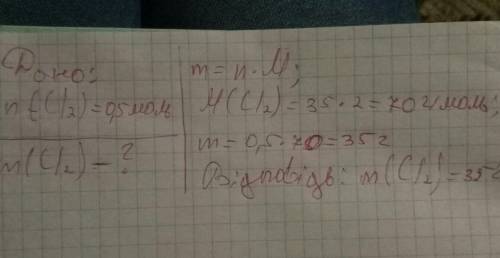 Дано:
n(Cl₂) = 0,5 моль
m(Cl₂) - ?
m = n · M;
M(Cl₂) = 35 · 2 = 70 г/моль;
m = 0,5 · 70 = 35 г
Відповідь: m(Cl₂) = 35 г